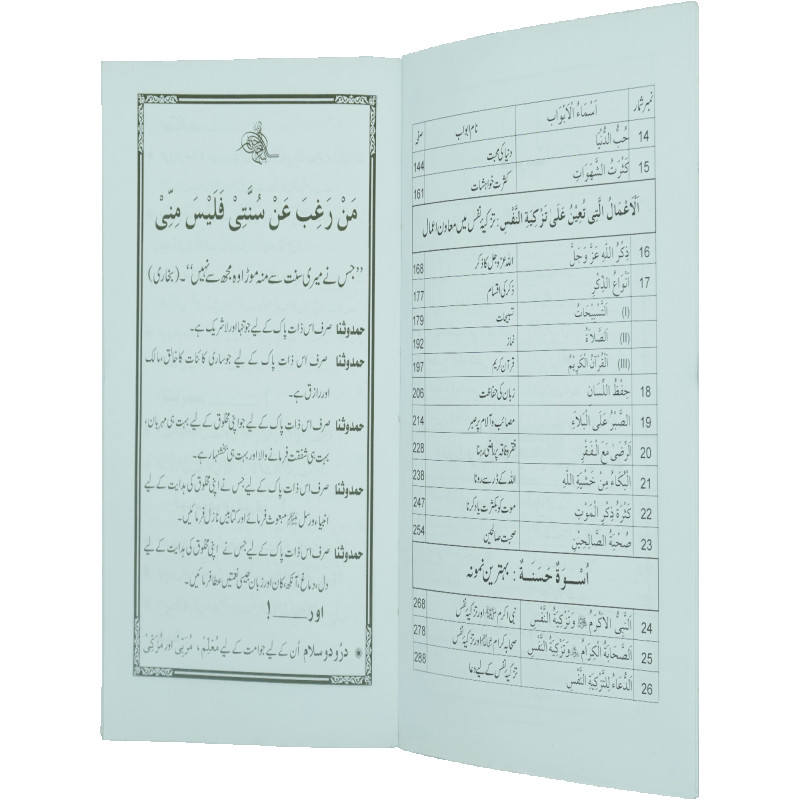 نمبر شمار اَسْمَاءُ الْاَبْوَاب نام ابواب صفحہ
14 حُبُّ الدُّنْيَا دنیا کی محبت 144
15 كَثْرَتُ الشَّهَوَاتِ کثرت خواہشات 161
اَلْاَعْمَالُ الَّتِي تُعِيْنُ عَلَى تَزْكِيَةِ النَّفْسِ: تزکیۂ نفس میں معاون اعمال
16 ذِكْرُ اللهِ عَزَّ وَجَلَّ اللہ عزوجل کا ذکر 168
17 اَنْوَاعُ الذِّكْرِ ذکر کی اقسام 177
(I) اَلتَّسْبِيْحَاتُ تسبیحات 179
(II) اَلصَّلَاةُ نماز 192
(III) اَلْقُرْآنُ الْكَرِيْمُ قرآن کریم 197
18 حِفْظُ اللِّسَانِ زبان کی حفاظت 206
19 اَلصَّبْرُ عَلَى الْبَلَاءِ مصائب و آلام پر صبر 214
20 اَلرِّضٰى مَعَ الْفَقْرِ فقر و فاقہ پر راضی رہنا 228
21 اَلْبُكَاءُ مِنْ خَشْيَةِ اللهِ اللہ کے ڈر سے رونا 238
22 كَثْرَةُ ذِكْرِ الْمَوْتِ موت کو بکثرت یاد کرنا 247
23 صُحْبَةُ الصَّالِحِيْنَ صحبت صالحین 254
اُسْوَةٌ حَسَنَةٌ: بہترین نمونہ
24 اَلنَّبِيُّ الْاَكْرَمُ ﷺ وَتَزْكِيَةُ النَّفْسِ نبی اکرم ﷺ اور تزکیۂ نفس 268
25 اَلصَّحَابَةُ الْكِرَامُ وَتَزْكِيَةُ النَّفْسِ صحابہ کرام اور تزکیۂ نفس 278
26 اَلدُّعَاءُ لِتَزْكِيَةِ النَّفْسِ تزکیۂ نفس کے لیے دعا 288
مَنْ رَغِبَ عَنْ سُنَّتِيْ فَلَيْسَ مِنِّيْ
”جس نے میری سنت سے منہ موڑا وہ مجھ سے نہیں“۔ (بخاری)
حمدوثنا صرف اس ذات پاک کے لیے جو تنہا اور لا شریک ہے۔
حمدوثنا صرف اس ذات پاک کے لیے جو ساری کائنات کا خالق، مالک
اور رازق ہے۔
حمدوثنا صرف اس ذات پاک کے لیے جو اپنی مخلوق کے لیے بہت ہی مہربان،
بہت ہی شفقت فرمانے والا اور بہت ہی بخشنہار ہے۔
حمدوثنا صرف اس ذات پاک کے لیے جس نے اپنی مخلوق کی ہدایت کے لیے
انبیاء اور رسل ﷺ مبعوث فرمائے اور کتابیں نازل فرمائیں۔
حمدوثنا صرف اس ذات پاک کے لیے جس نے اپنی مخلوق کی ہدایت کے لیے
دل، دماغ، آنکھ، کان اور زبان جیسی نعمتیں عطا فرمائیں۔
اور ــــــ !
درُود و سلام اُن کے لیے جو امت کے لیے مُعَلِّم، مُرَبِّی اور مُزَکِّی